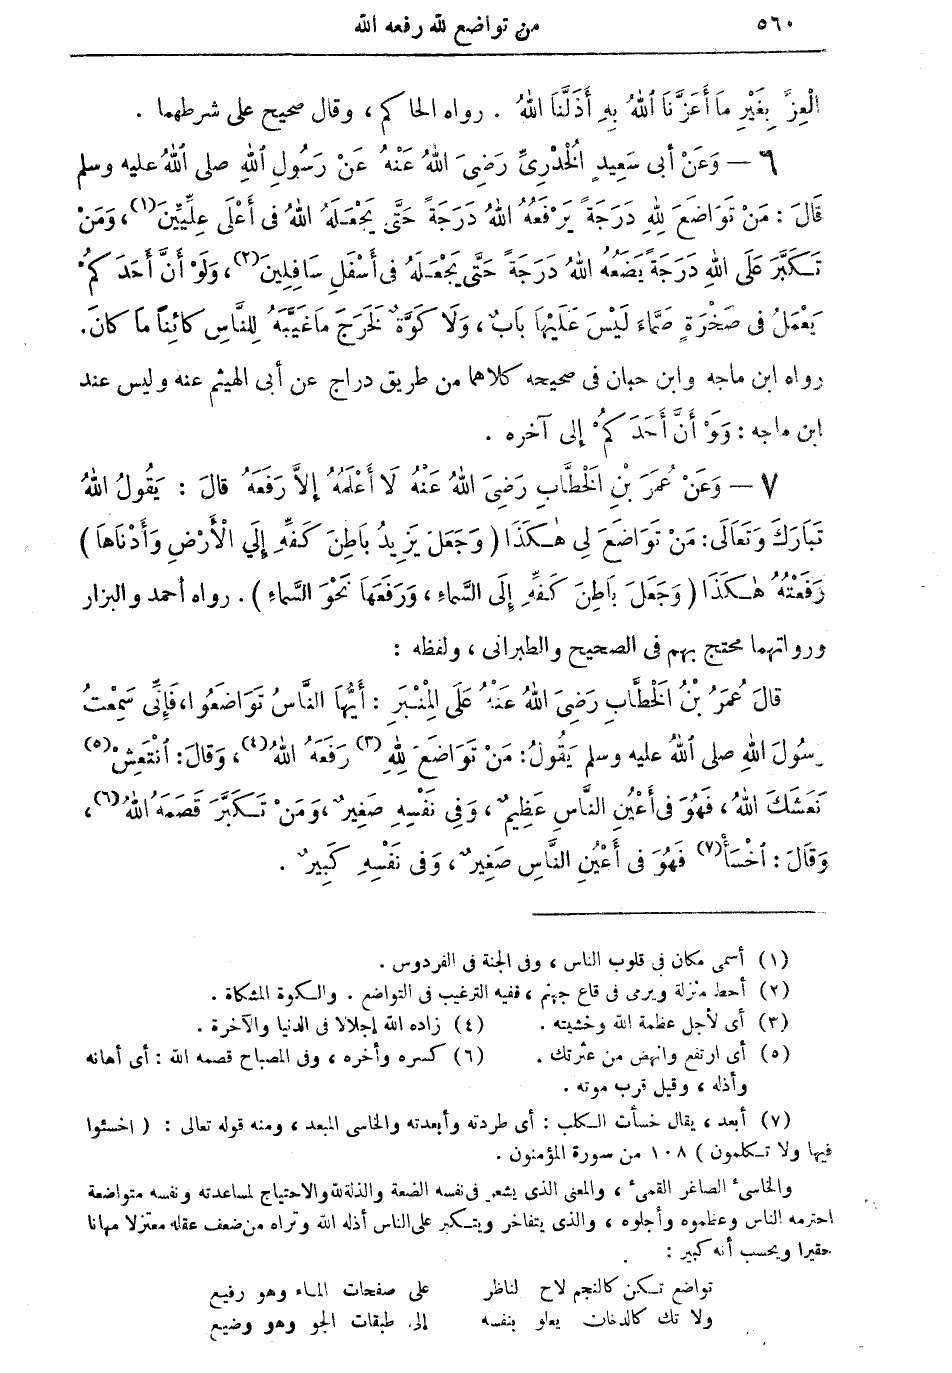 ٥٦٠ من تواضع لله رفعه الله
الْعِزَّ بِغَيْرِ مَا أَعَزَّنَا اللهُ بِهِ أَذَلَّنَا اللهُ . رواه الحاكم ، وقال صحيح على شرطهما .
٦ — وَعَنْ أَبى سَعِيدٍ الْخُدْرِىِّ رَضِىَ اللهُ عَنْهُ عَنْ رَسُولِ اللهِ صلى اللهُ عليه وسلم
قَالَ : مَنْ تَوَاضَعَ لِلهِ دَرَجَةً يَرْفَعُهُ اللهُ دَرَجَةً حَتَّى يَجْعَلَهُ اللهُ فى أَعْلَى عِلِّيِّينَ(١)، وَمَنْ
تَكَبَّرَ عَلَى اللهِ دَرَجَةً يَضَعُهُ اللهُ دَرَجَةً حَتَّى يَجْعَلَهُ فى أَسْفَلِ سَافِلِينَ(٢)، وَلَوْ أَنَّ أَحَدَكُمْ
يَعْمَلُ فى صَخْرَةٍ صَمَّاءَ لَيْسَ عَلَيْهَا بَابٌ ، وَلَا كَوَّةٌ لَخَرَجَ مَا غَيَّبَهُ لِلنَّاسِ كَائِنًا مَا كانَ.
رواه ابن ماجه وابن حبان فى صحيحه كلاهما من طريق دراج عن أبى الهيثم عنه وليس عند
ابن ماجه : وَلَوْ أَنَّ أَحَدَكُمْ إلى آخره .
٧ — وَعَنْ عُمَرَ بْنِ الْخَطَّابِ رَضِىَ اللهُ عَنْهُ لَا أَعْلَمُهُ إِلاَّ رَفَعَهُ قالَ : يَقُولُ اللهُ
تَبَارَكَ وَتَعَالَى: مَنْ تَوَاضَعَ لِى هٰكَذَا ( وَجَعَلَ يَزِيدُ بَاطِنَ كَفِّهِ إِلَي الْأَرْضِ وَأَدْنَاهَا )
رَفَعْتُهُ هٰكَذَا ( وَجَعَلَ بَاطِنَ كَفِّهِ إِلَى السَّمَاءِ ، وَرَفَعَهَا نَحْوَ السَّمَاءِ ) . رواه أحمد والبزار
ورواتهما محتج بهم فى الصحيح والطبرانى ، ولفظه :
قالَ عُمَرُ بْنُ الْخَطَّابِ رَضِىَ اللهُ عَنْهُ عَلَى الْمِنْبَرِ : أَيُّهَا النَّاسُ تَوَاضَعُوا، فَإِنِّى سَمِعْتُ
رسُولَ اللهِ صلى اللهُ عليه وسلم يَقُولُ: مَنْ تَوَاضَعَ لِلهِ(٣) رَفَعَهُ اللهُ(٤)، وَقالَ: انْتَعِشْ(٥)
نَعَشَكَ اللهُ ، فَهُوَ فى أَعْيُنِ النَّاسِ عَظِيمٌ ، وَفِى نَفْسِهِ صَغِيرٌ ، وَمَنْ تَكَبَّرَ قَصَمَهُ اللهُ(٦)،
وَقَالَ : اخْسَأْ(٧) فَهُوَ فى أَعْيُنِ النَّاسِ صَغِيرٌ ، وَفى نَفْسِهِ كَبِيرٌ .
(١) أسمى مكان فى قلوب الناس ، وفى الجنة فى الفردوس .
(٢) أحط منزلة ويرمى فى قاع جهنم ، ففيه الترغيب فى التواضع . والكوة المشكاة .
(٣) أى لأجل عظمة الله وخشيته . (٤) زاده الله إجلالا فى الدنيا والآخرة .
(٥) أى ارتفع وانهض من عثرتك . (٦) كسره وأخره ، وفى المصباح قصمه الله : أى أهانه
وأذله ، وقيل قرب موته .
(٧) أبعد ، يقال خسأت الكلب : أى طردته وأبعدته والخاسى المبعد ، ومنه قوله تعالى : ( اخسئوا
فيها ولا تكلمون ) ١٠٨ من سورة المؤمنون .
والخاسىء الصاغر القمىء ، والمعنى الذى يشعر فى نفسه الضعة والذلة لله والاحتياج لمساعدته ونفسه متواضعة
احترمه الناس وعظموه وأجلوه ، والذى يتفاخر ويتكبر على الناس أذله الله وتراه من ضعف عقله معتزلا مهانا
حقيرا ويحسب أنه كبير :
تواضع تكن كالنجم لاح لناظر على صفحات الماء وهو رفيع
ولا تك كالدخان يعلو بنفسه إلى طبقات الجو وهو وضيع